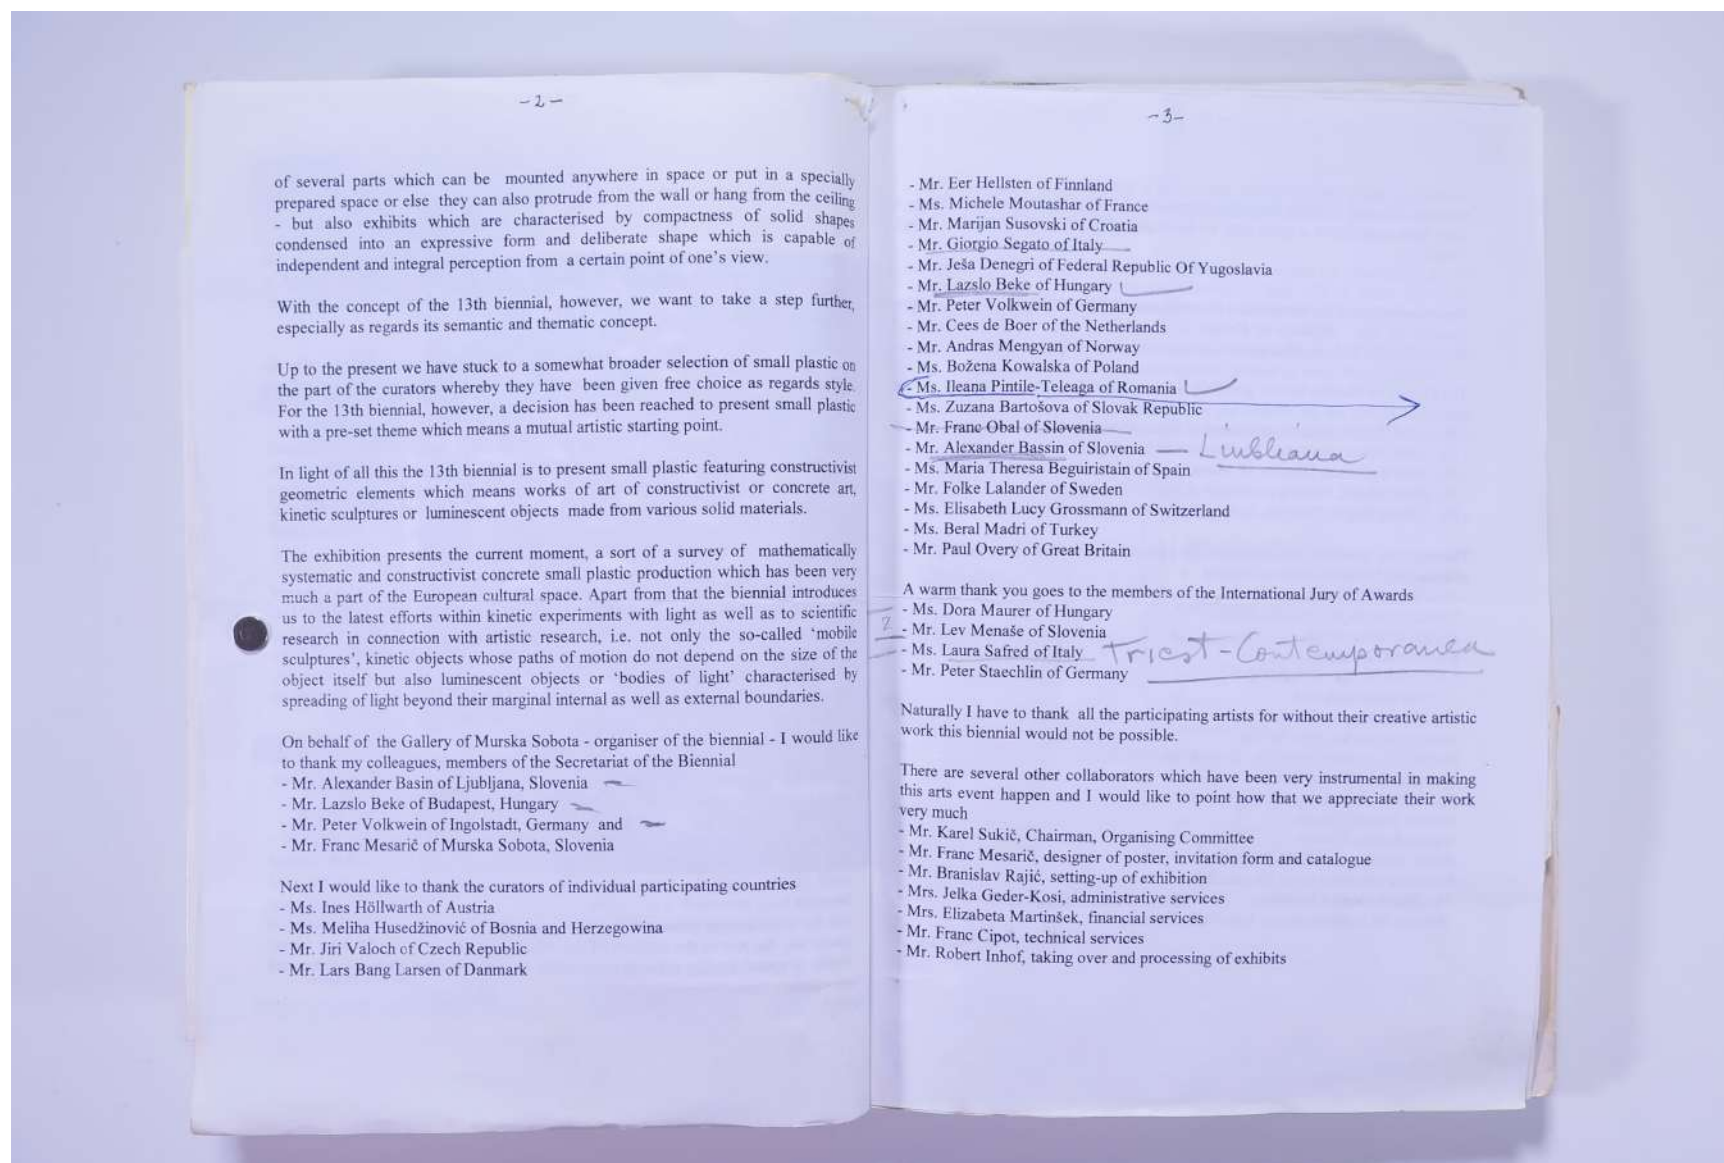 -2-
of several parts which can be mounted anywhere in space or put in a specially
prepared space or else they can also protrude from the wall or hang from the ceiling
- but also exhibits which are characterised by compactness of solid shapes
condensed into an expressive form and deliberate shape which is capable of
independent and integral perception from a certain point of one's view.
With the concept of the 13th biennial, however, we want to take a step further,
especially as regards its semantic and thematic concept.
Up to the present we have stuck to a somewhat broader selection of small plastic on
the part of the curators whereby they have been given free choice as regards style.
For the 13th biennial, however, a decision has been reached to present small plastic
with a pre-set theme which means a mutual artistic starting point.
In light of all this the 13th biennial is to present small plastic featuring constructivist
geometric elements which means works of art of constructivist or concrete art,
kinetic sculptures or luminescent objects made from various solid materials.
The exhibition presents the current moment, a sort of a survey of mathematically
systematic and constructivist concrete small plastic production which has been very
much a part of the European cultural space. Apart from that the biennial introduces
us to the latest efforts within kinetic experiments with light as well as to scientific
research in connection with artistic research, i.e. not only the so-called 'mobile
sculptures', kinetic objects whose paths of motion do not depend on the size of the
object itself but also luminescent objects or 'bodies of light' characterised by
spreading of light beyond their marginal internal as well as external boundaries.
On behalf of the Gallery of Murska Sobota - organiser of the biennial - I would like
to thank my colleagues, members of the Secretariat of the Biennial
- Mr. Alexander Basin of Ljubljana, Slovenia
- Mr. Lazslo Beke of Budapest, Hungary
- Mr. Peter Volkwein of Ingolstadt, Germany and
- Mr. Franc Mesarič of Murska Sobota, Slovenia
Next I would like to thank the curators of individual participating countries
- Ms. Ines Höllwarth of Austria
- Ms. Meliha Husedžinović of Bosnia and Herzegowina
- Mr. Jiri Valoch of Czech Republic
- Mr. Lars Bang Larsen of Danmark
-3-
- Mr. Eer Hellsten of Finnland
- Ms. Michele Moutashar of France
- Mr. Marijan Susovski of Croatia
- Mr. Giorgio Segato of Italy
- Mr. Ješa Denegri of Federal Republic Of Yugoslavia
- Mr. Lazslo Beke of Hungary
- Mr. Peter Volkwein of Germany
- Mr. Cees de Boer of the Netherlands
- Mr. Andras Mengyan of Norway
- Ms. Božena Kowalska of Poland
- Ms. Ileana Pintile-Teleaga of Romania
- Ms. Zuzana Bartošova of Slovak Republic
- Mr. Franc Obal of Slovenia
- Mr. Alexander Bassin of Slovenia — Liubliana
- Ms. Maria Theresa Beguiristain of Spain
- Mr. Folke Lalander of Sweden
- Ms. Elisabeth Lucy Grossmann of Switzerland
- Ms. Beral Madri of Turkey
- Mr. Paul Overy of Great Britain
A warm thank you goes to the members of the International Jury of Awards
- Ms. Dora Maurer of Hungary
2 - Mr. Lev Menaše of Slovenia
- Ms. Laura Safred of Italy Triest - Contemporanea
- Mr. Peter Staechlin of Germany
Naturally I have to thank all the participating artists for without their creative artistic
work this biennial would not be possible.
There are several other collaborators which have been very instrumental in making
this arts event happen and I would like to point how that we appreciate their work
very much
- Mr. Karel Sukič, Chairman, Organising Committee
- Mr. Franc Mesarič, designer of poster, invitation form and catalogue
- Mr. Branislav Rajić, setting-up of exhibition
- Mrs. Jelka Geder-Kosi, administrative services
- Mrs. Elizabeta Martinšek, financial services
- Mr. Franc Cipot, technical services
- Mr. Robert Inhof, taking over and processing of exhibits